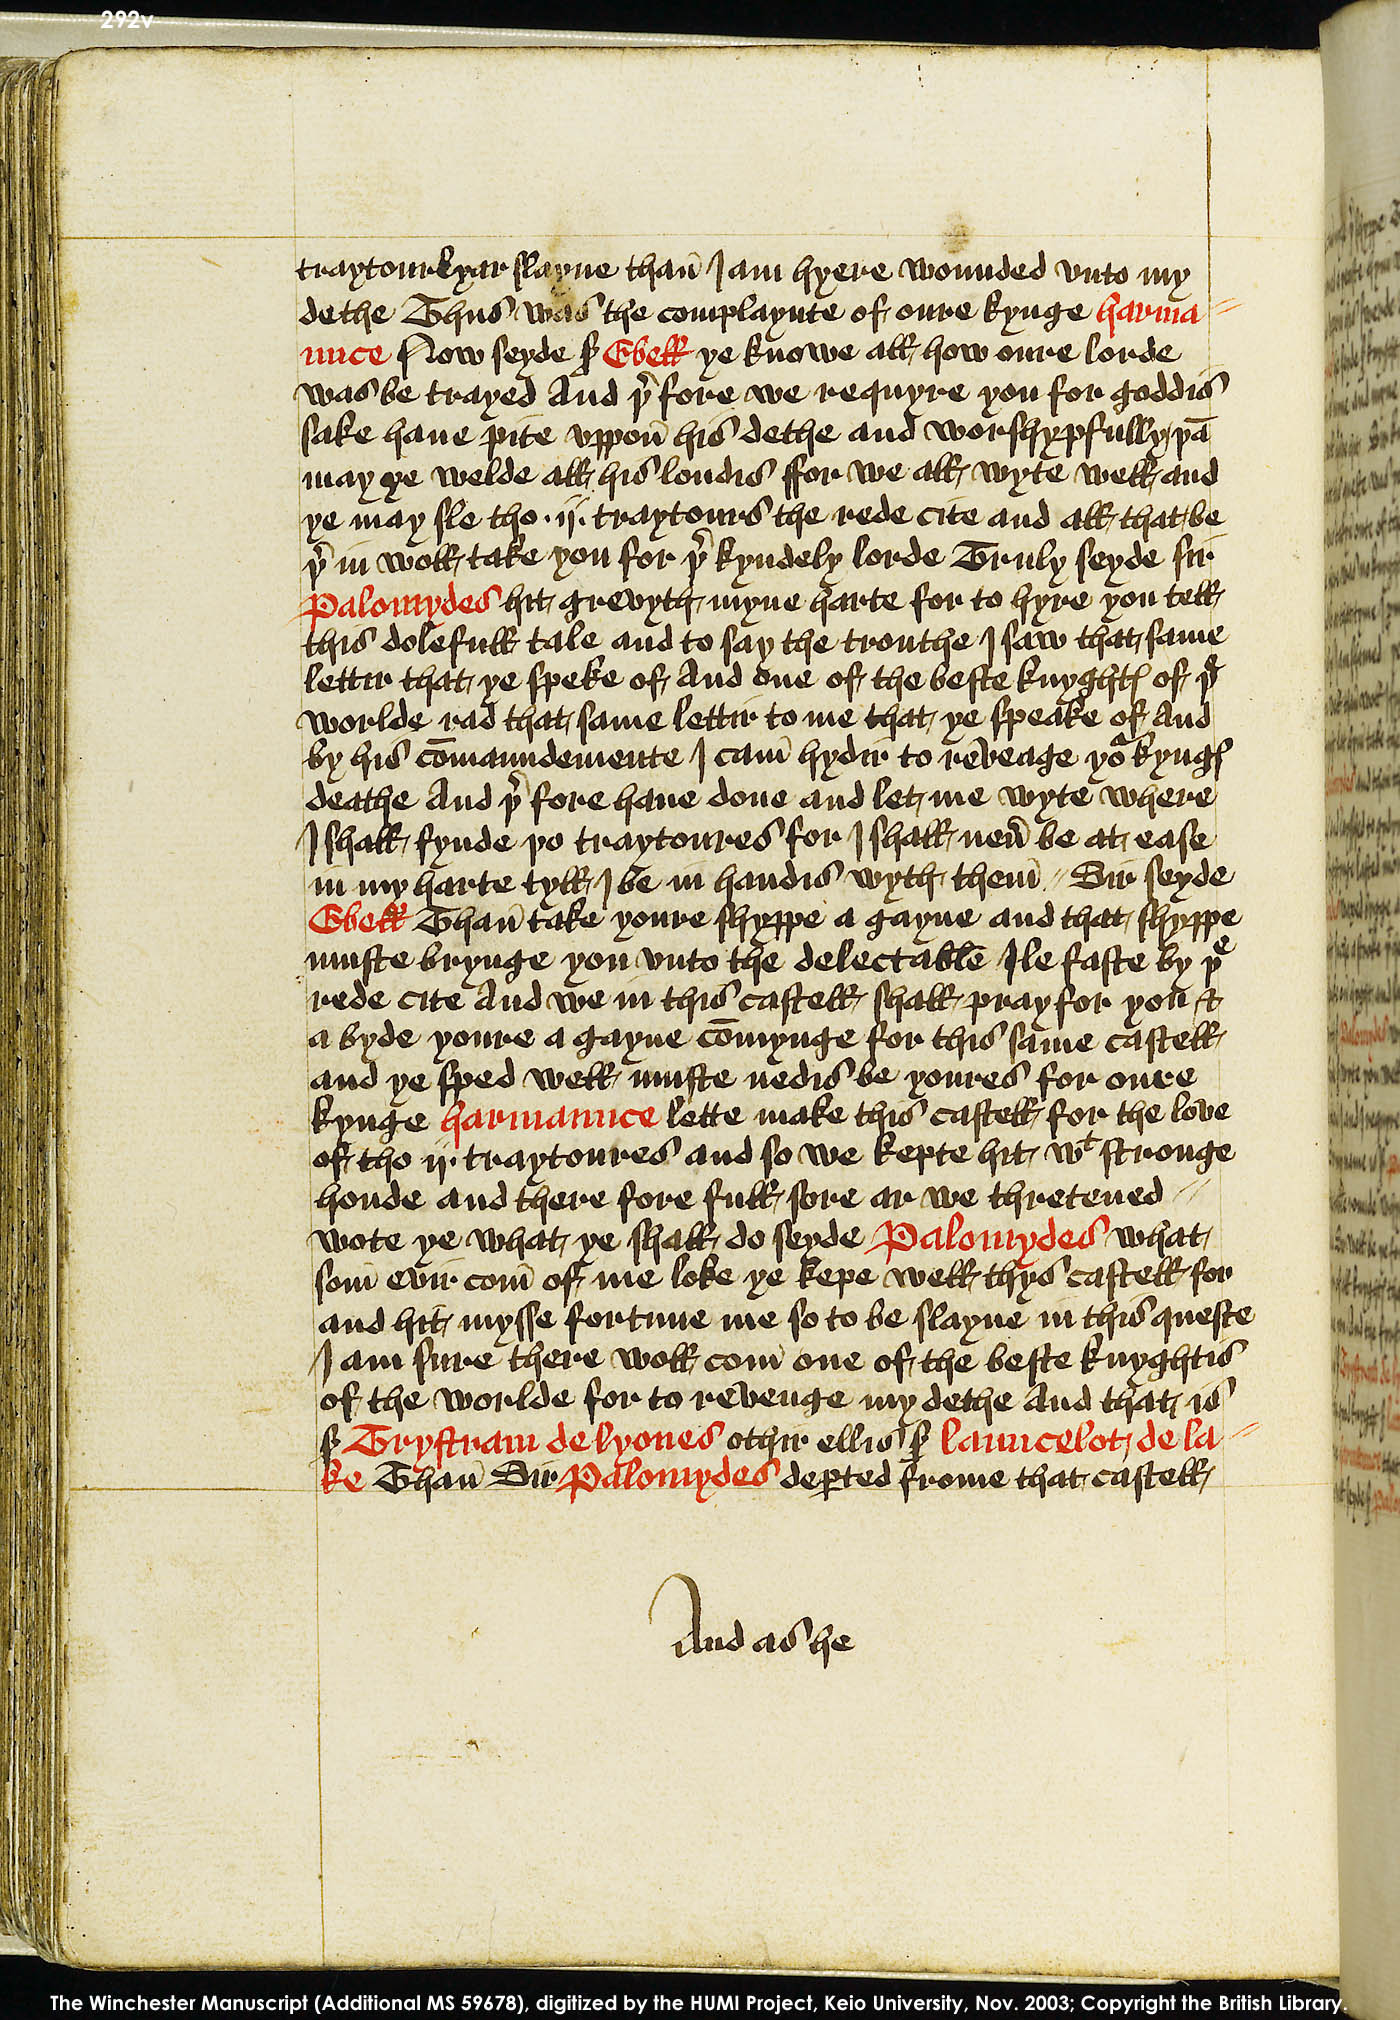 292v
traytourkyar slayne than̄ I am hyere wounded vnto my
dethe Thus was the complaynte of oure kynge harma
unce Now seyde sͬ Ebell ye knowe all how oure lorde
was be trayed And þͬ fore we requyre you for goddis
sake haue pite vppon̄ his dethe and worshypfully þā
may ye welde all his londis ffor we all wyte well and
ye may sle tho .ij. traytours the rede cite and all that be
þͬ in woll take you for þͬ kyndely lorde Truly seyde sir
Palomydes hit grevyth myne harte for to hyre you tell
this dolefull tale and to say the trouthe I saw that same
lettir that ye speke of And one of the beste knyghtꝭ of þͤ
worlde rad that same lettir to me that ye speake of And
by his cōmaundemente I cam̄ hydir to revenge yoͬ kyngꝭ
deathe And þͬ fore haue done and let me wyte where
I shall fynde þo traytoures for I shall neuͬ be at ease
in my harte tyll I be in handis wyth them̄ // Sir seyde
Ebell Than̄ take youre shyppe a gayne and that shyppe
muste brynge you vnto the delectable Ile faste by þͤ
rede cite And we in this castell shall pray for you &
a byde youre a gayne cōmynge for this same castell
and ye sped well muste nedis be youres for oure
kynge harmaunce lette make this castell for the love
of tho ij. traytoures and so we kepte hit wͭ stronge
honde and there fore full sore ar we thretened //
wote ye what ye shall do seyde Palomydes what
som̄ evir com̄ of me loke ye kepe well thys castell for
and hit mysse fortune me so to be slayne in this queste
I am sure there woll com̄ one of the beste knyghtis
of the worlde for to revenge my dethe And that is
sͬ Trystram de lyones othir ellis sͬ launcelot de la
ke Than̄ Sir Palomydes deꝑted frome that castell
And as he
The Winchester Manuscript (Additional MS 59678), digitized by the HUMI Project, Keio University, Nov. 2003; Copyright the British Library.